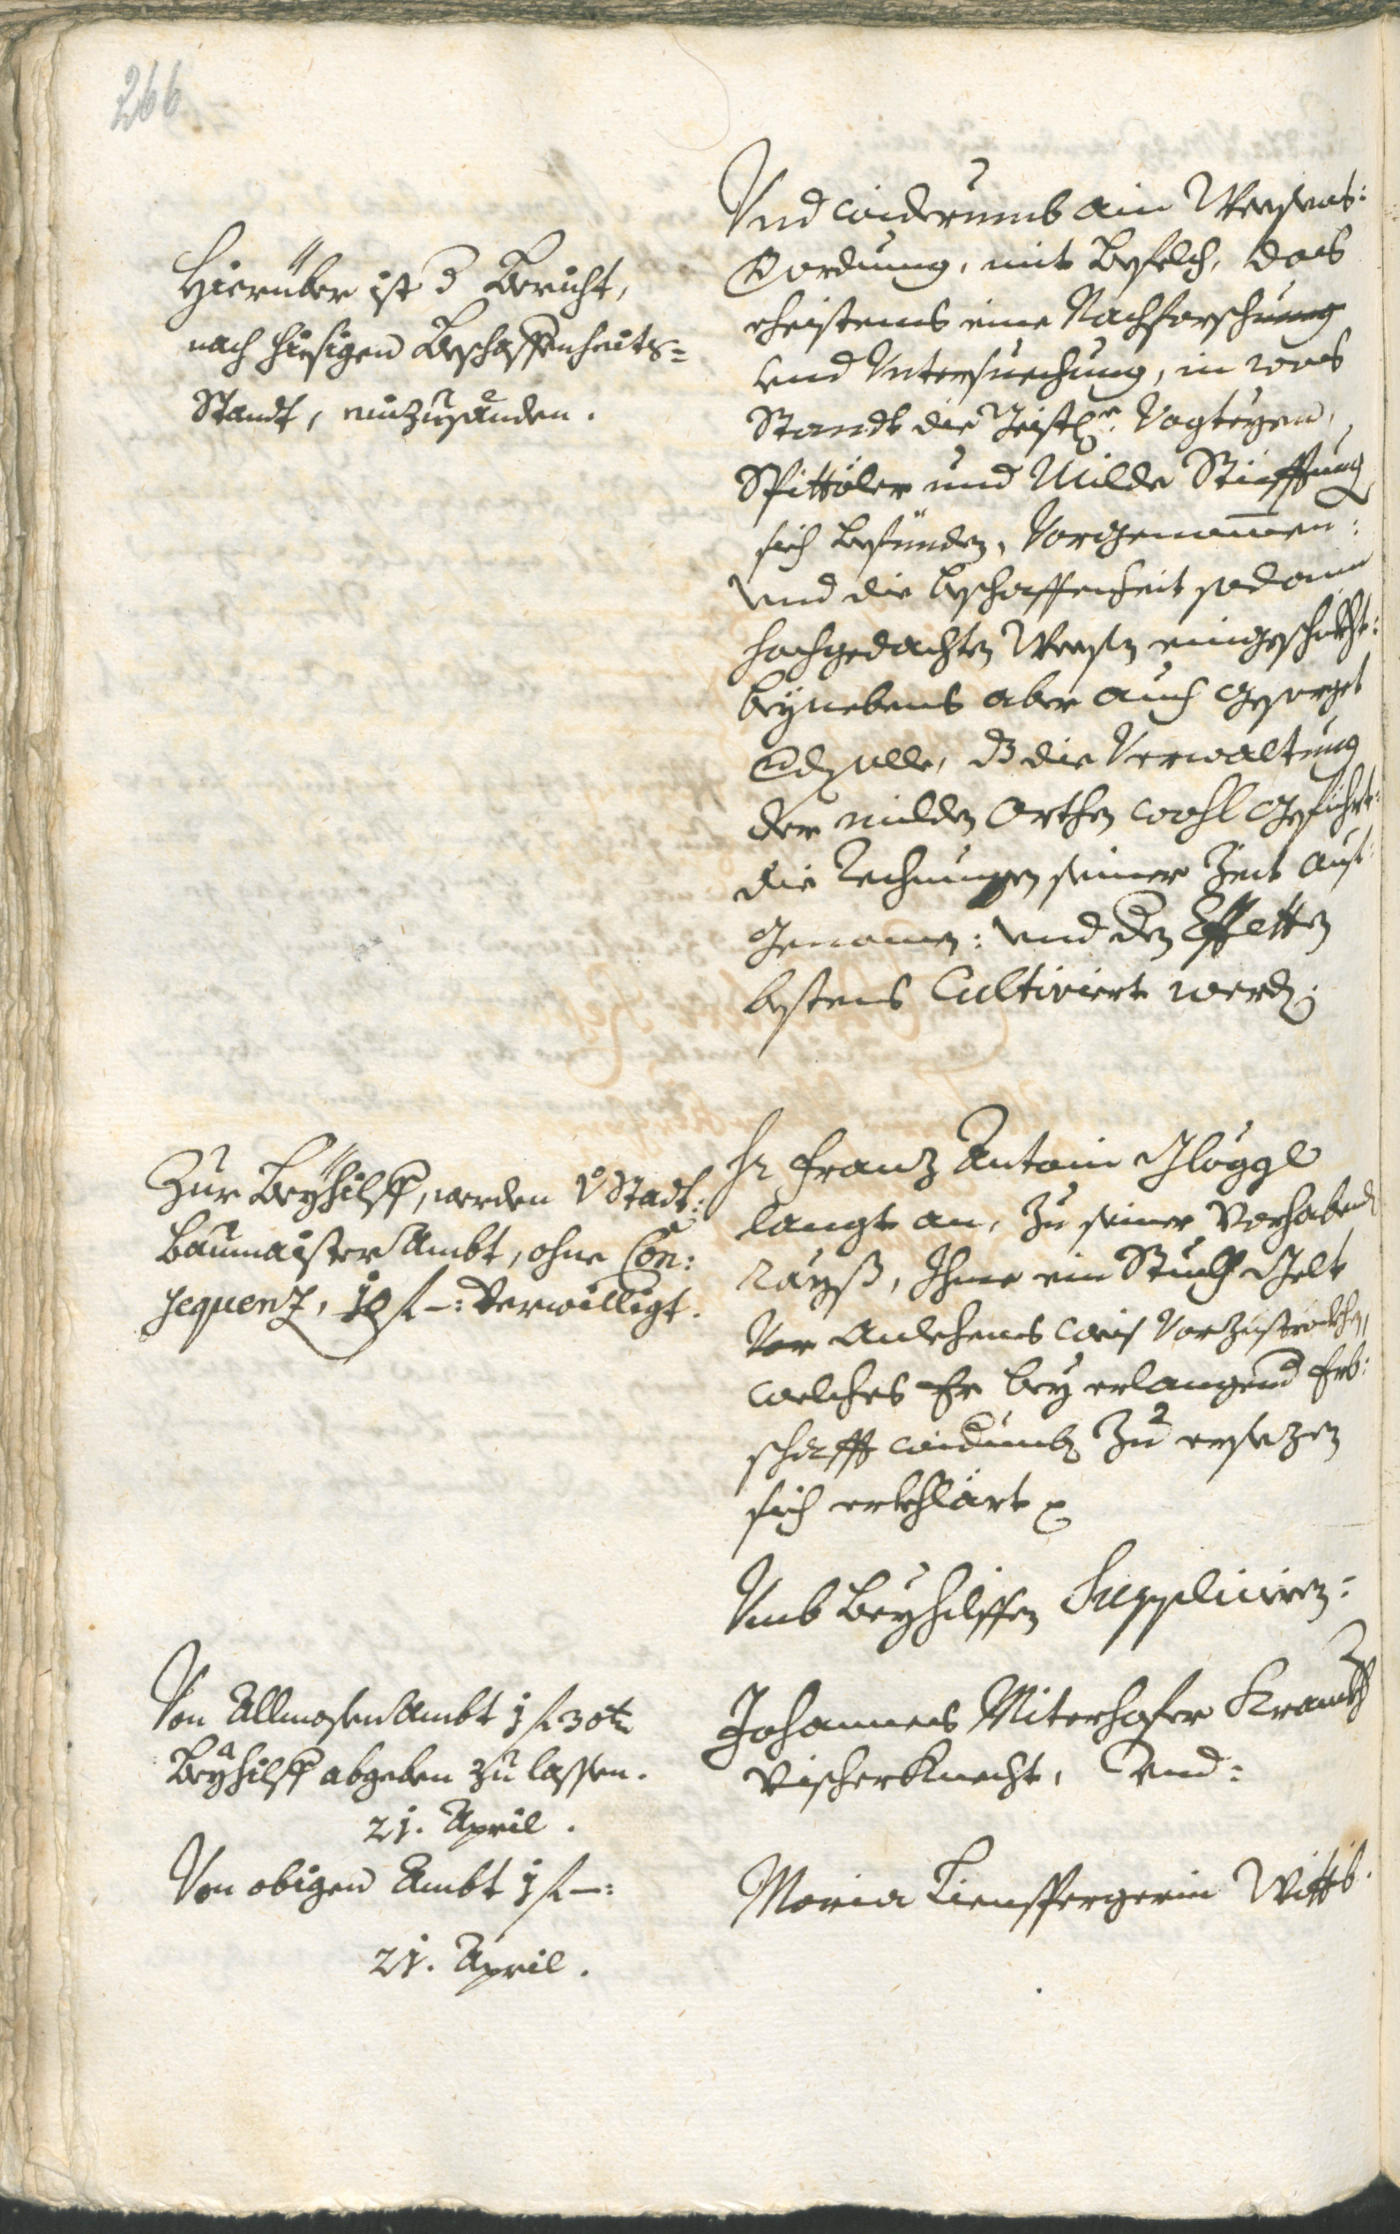 266
Hierüber ist d Bericht,
nach hiesigen Beschaffenheits=
Standt, einzusenden.
Und widerumb ain Wesens:
Ordnung, mit Befelch, das
ehistens eine Nachforschung
und Untersuechung, in was
Standt die Geistl: Vogteyen,
Spittäler und Milde Stifftung
sich befünden, Vorgenommen:
und die beschaffenheit sodann
hochgedachten Wesen eingeschickht:
beynebens aber auch gesorget
werden solle, dz die Verwaltung
der milden Orthen wohl geführt:
die Rechnungen seiner Zeit auf:
genomen: und den Effetten
bestens Cultiviert werden.
Zur Beyhilff, werden v Stadt:
Baumaister Ambt, ohne Con:
sequenz, 10 f –: Verwilligt.
Hr Franz Antoni Glöggl
langt an, zu seiner Vorhabend
Rayß, Ihme ein Stuckh Gelt
Vor anlehens weis Vorzustreckhen,
welches Er bey erlangend Erb:
schafft widumb zu ersezen
sich erkhlärt
Umb Beyhilffen Suppliciren:
Von Allmosen Ambt 1 f 30 kr
Beyhilff abgeben zu lassen.
21. April.
Johannes Miterhofer Krankh
Vischerknecht, und:
Von obigen Ambt 1 f –:
21. April.
Maria Wittib.